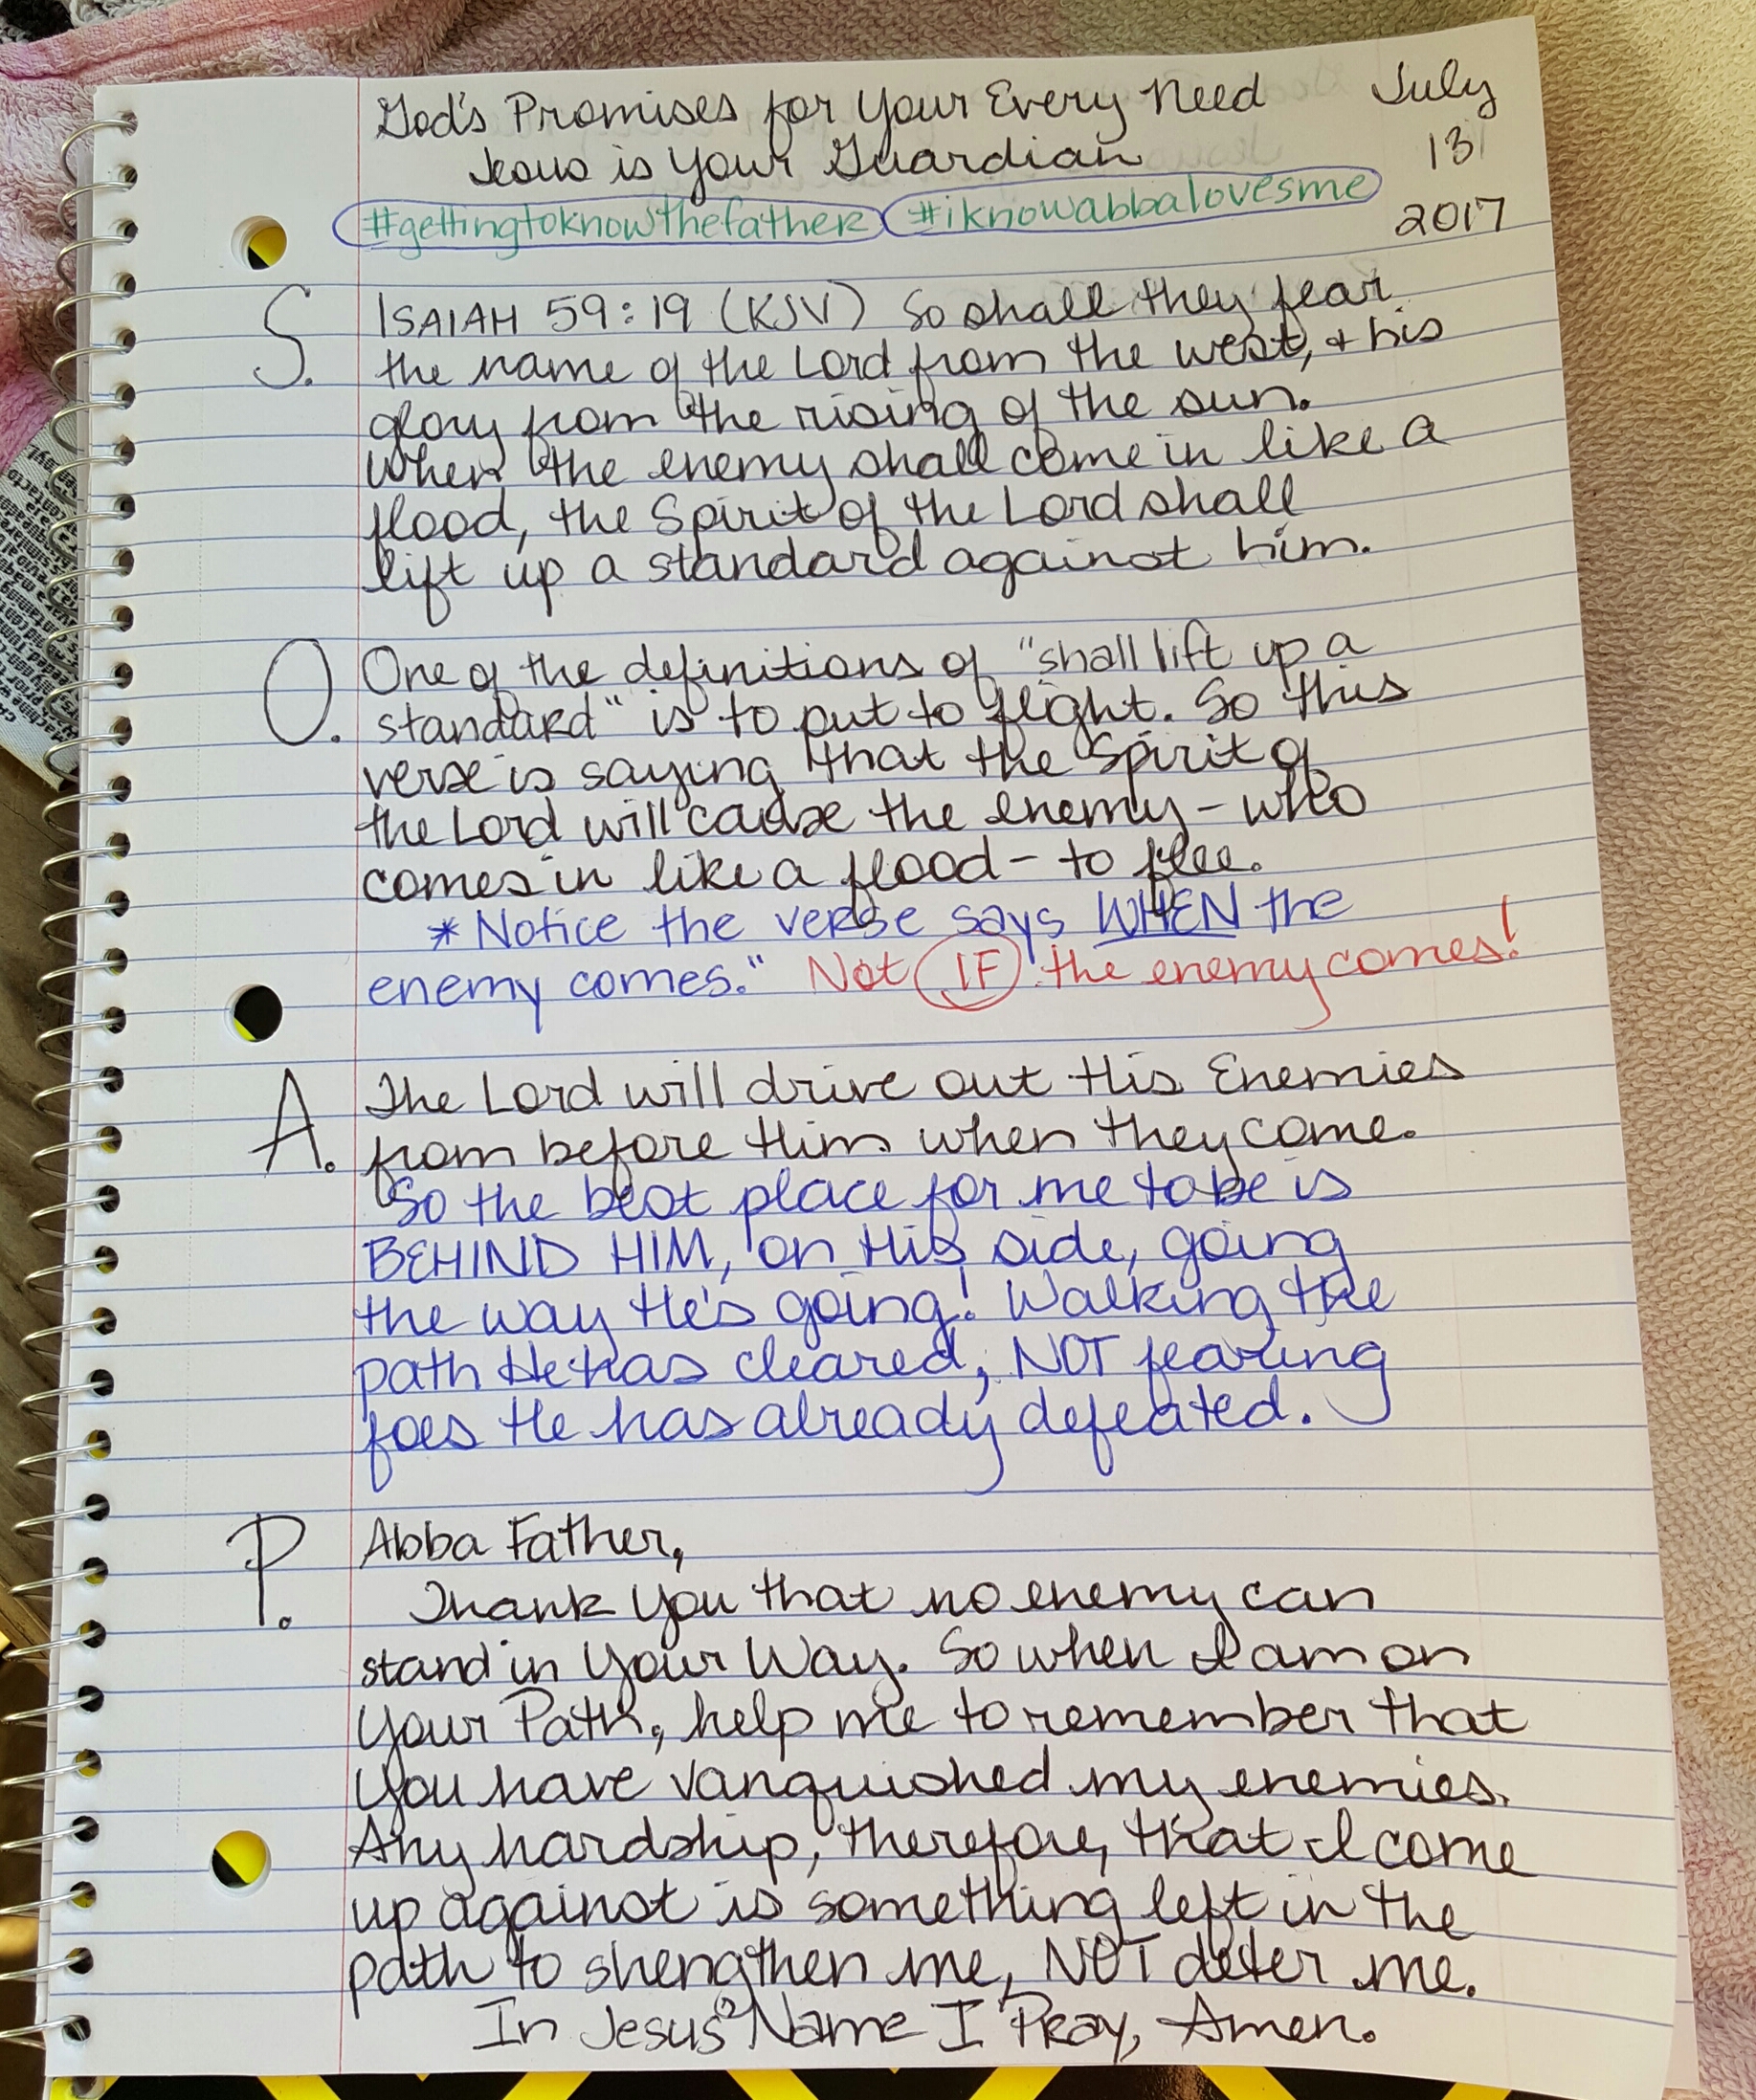 God's Promises for Your Every Need
July
Jesus is Your Guardian
13
#gettingtoknowthefather #iknowabbalovesme
2017
S. ISAIAH 59:19 (KJV) So shall they fear
the name of the Lord from the west, & his
glory from the rising of the sun.
When the enemy shall come in like a
flood, the Spirit of the Lord shall
lift up a standard against him.
O. One of the definitions of "shall lift up a
standard" is to put to flight. So this
verse is saying that the Spirit of
the Lord will cause the enemy - who
comes in like a flood - to flee.
* Notice the verse says WHEN the
enemy comes." Not IF the enemy comes!
A. The Lord will drive out His Enemies
from before Him when they come.
So the best place for me to be is
BEHIND HIM, on His side, going
the way He's going! Walking the
path He has cleared, NOT fearing
foes He has already defeated.
P. Abba Father,
Thank You that no enemy can
stand in Your Way. So when I am on
Your Path, help me to remember that
You have vanquished my enemies.
Any hardship, therefore, that I come
up against is something left in the
path to strengthen me, NOT deter me.
In Jesus' Name I Pray, Amen.